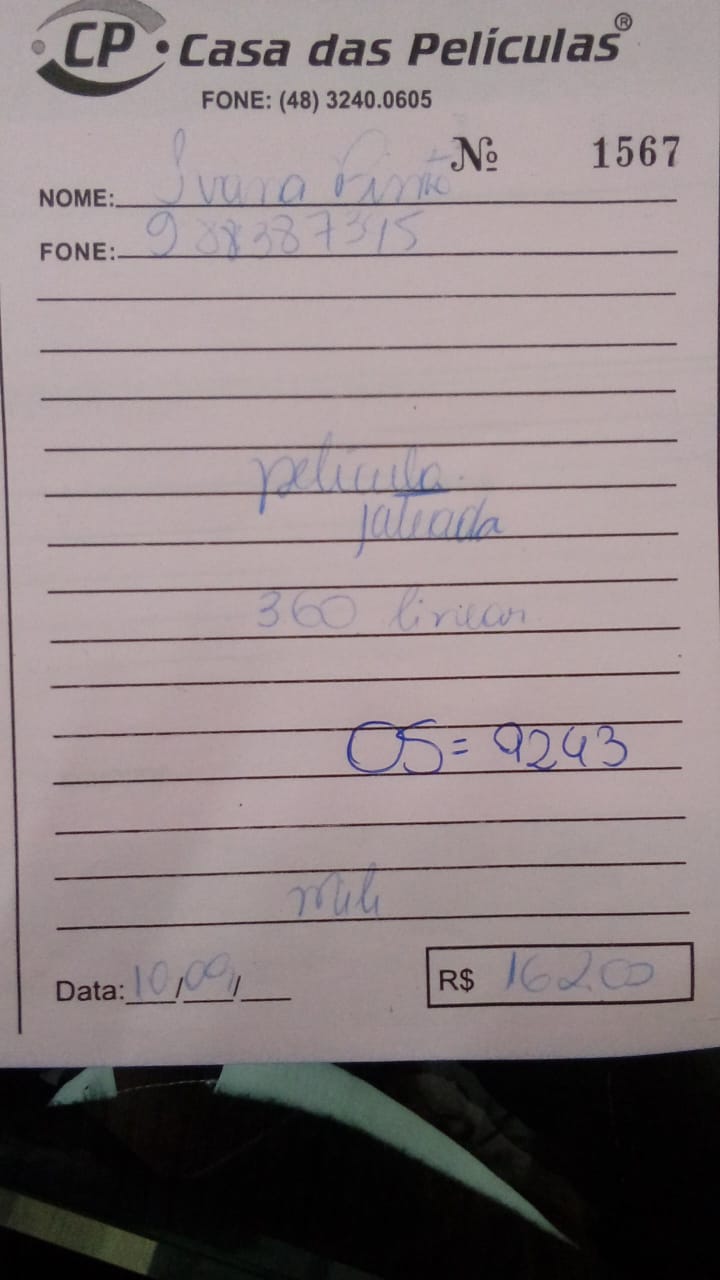 CP • Casa das Películas®
FONE: (48) 3240.0605
Nº 1567
NOME: Ivana Pinto
FONE: 988387315
película
jateada
360 linear
OS = 9243
Data: 10/09/
R$ 16200